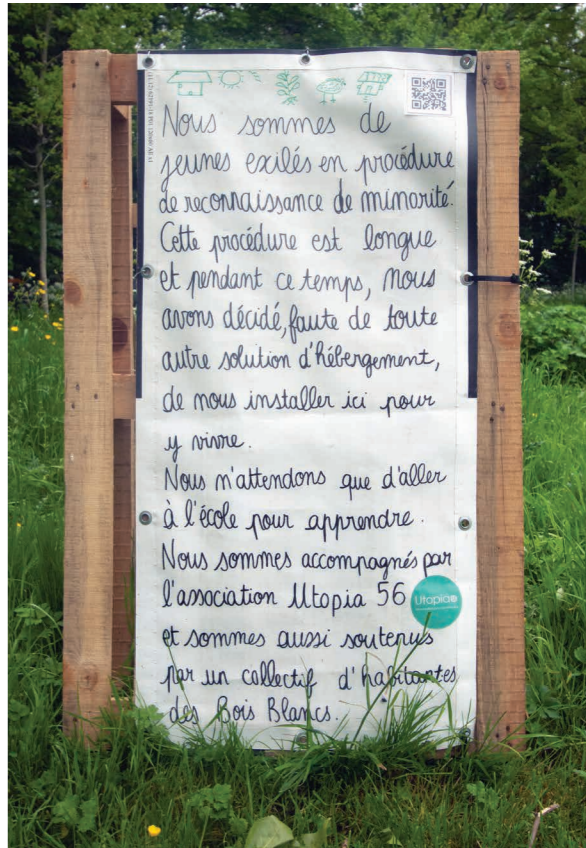 Nous sommes de
jeunes exilés en procédure
de reconnaissance de minorité.
Cette procédure est longue
et pendant ce temps, nous
avons décidé, faute de toute
autre solution d'hébergement,
de nous installer ici pour
y vivre.
Nous n'attendons que d'aller
à l'école pour apprendre.
Nous sommes accompagnés par
l'association Utopia 56
Utopia56
et sommes aussi soutenus
par un collectif d'habitantes
des Bois Blancs.